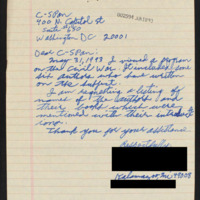 C-SPAN
400 N. Capitol St
Suite #650
Washington DC 20001
Dear C-SPAN:
May 31, 1993 I viewed a program
on the Civil War. It included some
six authors who had written
on the subject.
I am requesting a listing of
names of the authors and
their books which were
mentioned with their
Thank you for your assistance.
Kalamazoo, MI 49009